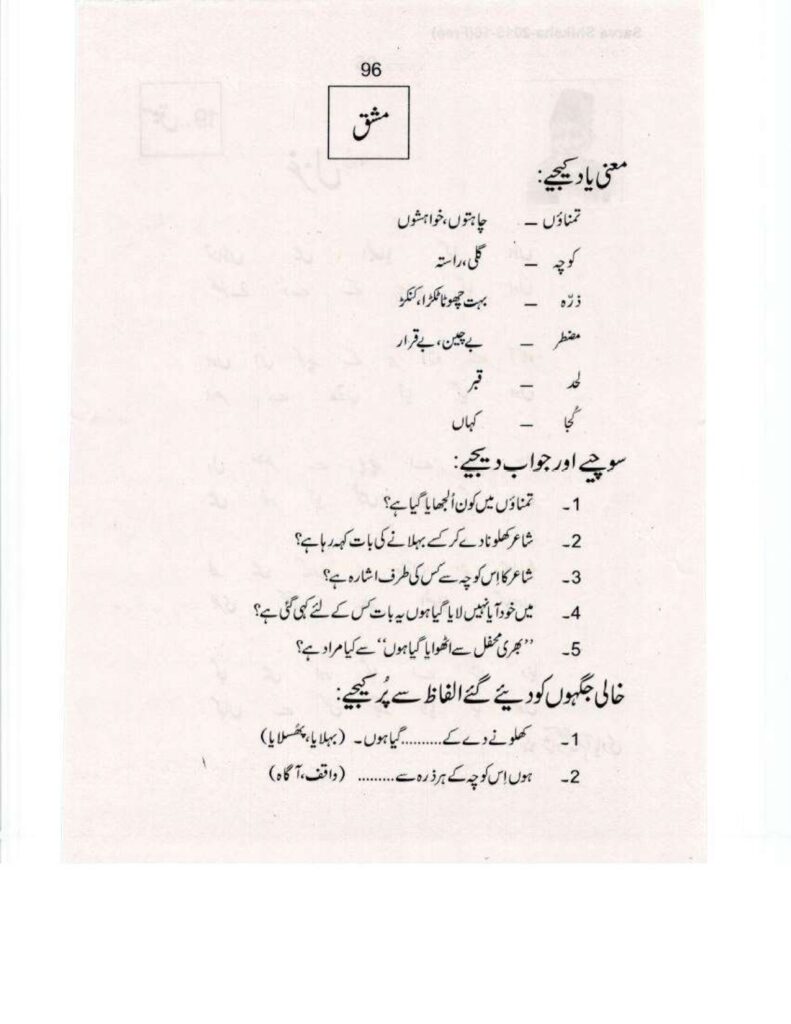 96
مشق
معنی یاد کیجیے:
تمناؤں – چاہتوں، خواہشوں
کوچہ – گلی، راستہ
ذرّہ – بہت چھوٹا ٹکڑا، کنکڑ
مضطر – بے چین، بے قرار
لحد – قبر
کُجا – کہاں
سوچیے اور جواب دیجیے:
1۔ تمناؤں میں کون اُلجھایا گیا ہے؟
2۔ شاعر کھلونا دے کر کسے بہلانے کی بات کہہ رہا ہے؟
3۔ شاعر کا اِس کوچہ سے کس کی طرف اشارہ ہے؟
4۔ میں خود آیا نہیں لایا گیا ہوں یہ بات کس کے لئے کہی گئی ہے؟
5۔ ’’بھری محفل سے اٹھوایا گیا ہوں‘‘ سے کیا مراد ہے؟
خالی جگہوں کو دیئے گئے الفاظ سے پُر کیجیے:
1۔ کھلونے دے کے.........گیا ہوں۔ (بہلایا، پھُسلایا)
2۔ ہوں اِس کوچہ کے ہر ذرہ سے ......... (واقف، آگاہ)